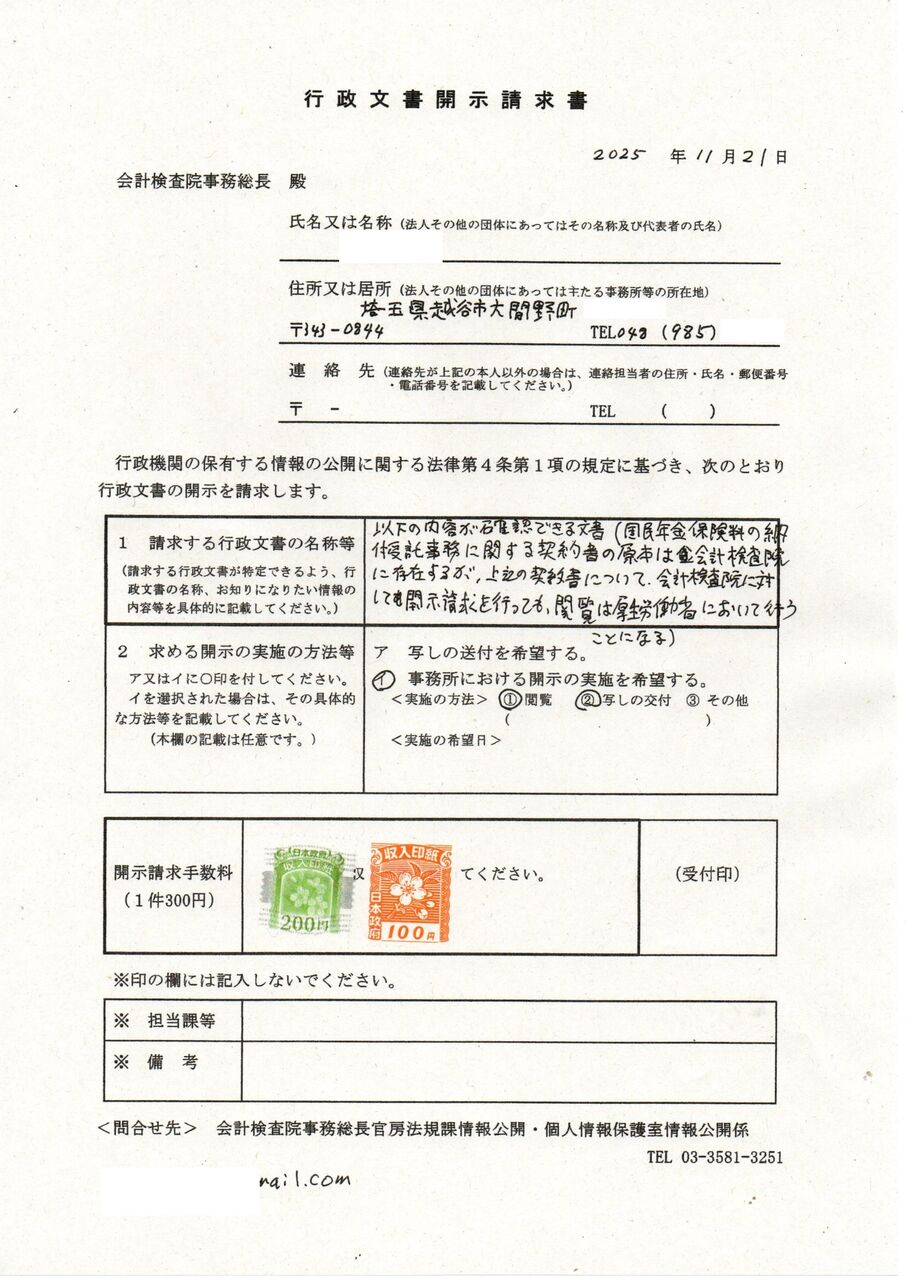 行政文書開示請求書
2025 年 11月 21日
会計検査院事務総長 殿
氏名又は名称（法人その他の団体にあってはその名称及び代表者の氏名）
住所又は居所（法人その他の団体にあっては主たる事務所等の所在地）
埼玉県越谷市大間野町
〒343-0844 TEL048 (985)
連絡先（連絡先が上記の本人以外の場合は、連絡担当者の住所・氏名・郵便番号
・電話番号を記載してください。）
〒 - TEL ( )
行政機関の保有する情報の公開に関する法律第４条第１項の規定に基づき、次のとおり
行政文書の開示を請求します。
１ 請求する行政文書の名称等
（請求する行政文書が特定できるよう、行
政文書の名称、お知りになりたい情報の
内容等を具体的に記載してください。）
以下の内容が確認できる文書（国民年金保険料の納
付受託事務に関する契約書の原本は会計検査院
に存在するが、上記の契約書について、会計検査院に対
しても開示請求を行っても、閲覧は厚生労働省において行う
ことになる）
２ 求める開示の実施の方法等
ア又はイに○印を付してください。
イを選択された場合は、その具体的
な方法等を記載してください。
（本欄の記載は任意です。）
ア 写しの送付を希望する。
イ 事務所における開示の実施を希望する。
＜実施の方法＞ ①閲覧 ②写しの交付 ③ その他
( )
＜実施の希望日＞
開示請求手数料
（１件300円）
日本政府
収入印紙
200円
収入印紙
日本政府
100円
てください。
（受付印）
※印の欄には記入しないでください。
※ 担当課等
※ 備考
＜問合せ先＞ 会計検査院事務総長官房法規課情報公開・個人情報保護室情報公開係
TEL 03-3581-3251
mail.com